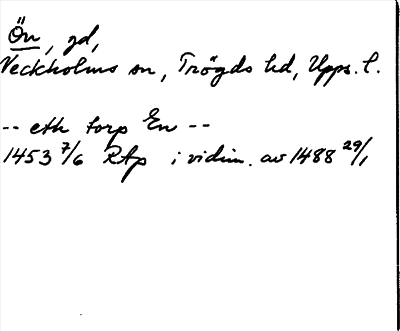 Ön, gd,
Veckholms sn, Trögds hd, Upps. l.
-- eth torp En --
1453 7/6 RAp i vidim. av 1488 29/1